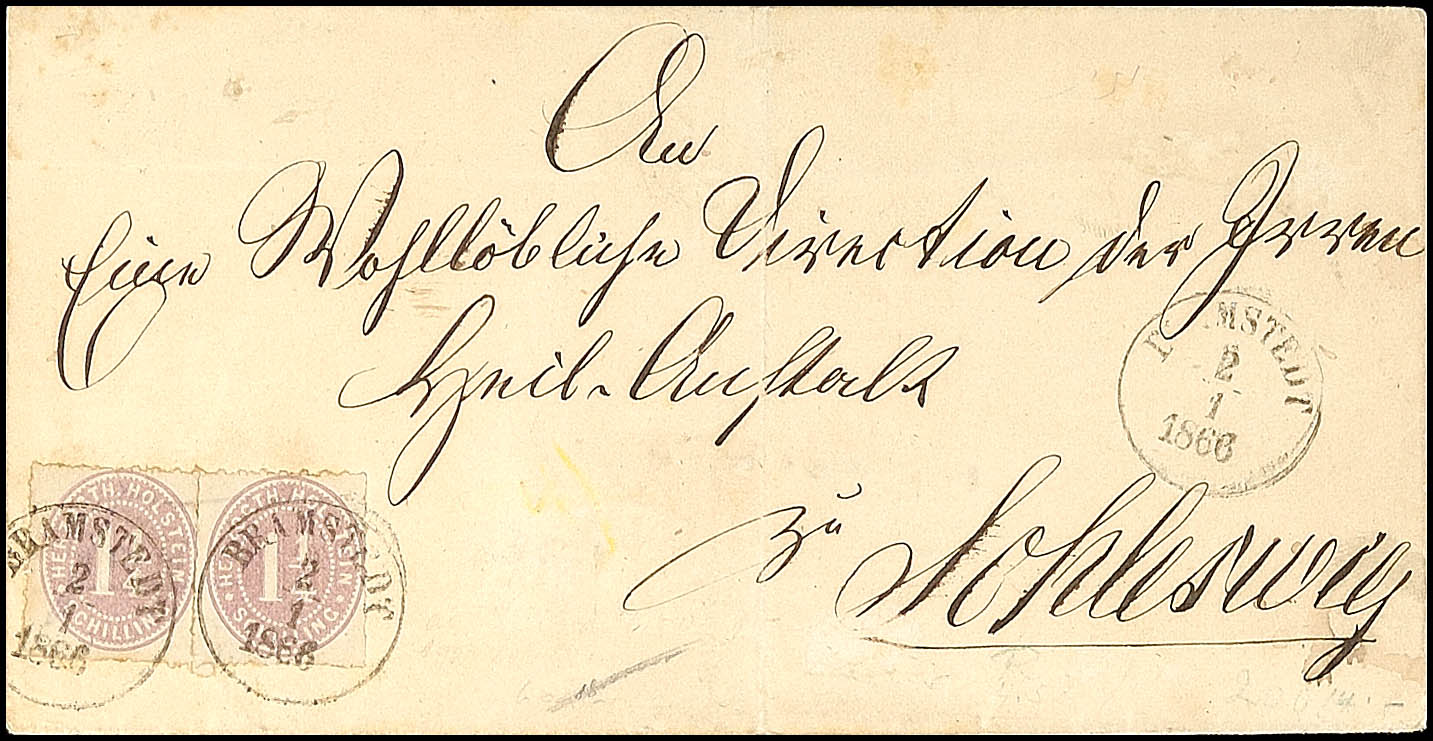 An
Eine Wohllöbliche Direction der Irren
Heil-Anstalt
zu Schleswig
BRAMSTEDT
2
1
1866
HERZGTH. HOLSTEIN
1¼
SCHILLING
BRAMSTEDT
2
1
1866
HERZGTH. HOLSTEIN
1¼
SCHILLING
BRAMSTEDT
2
1
1866